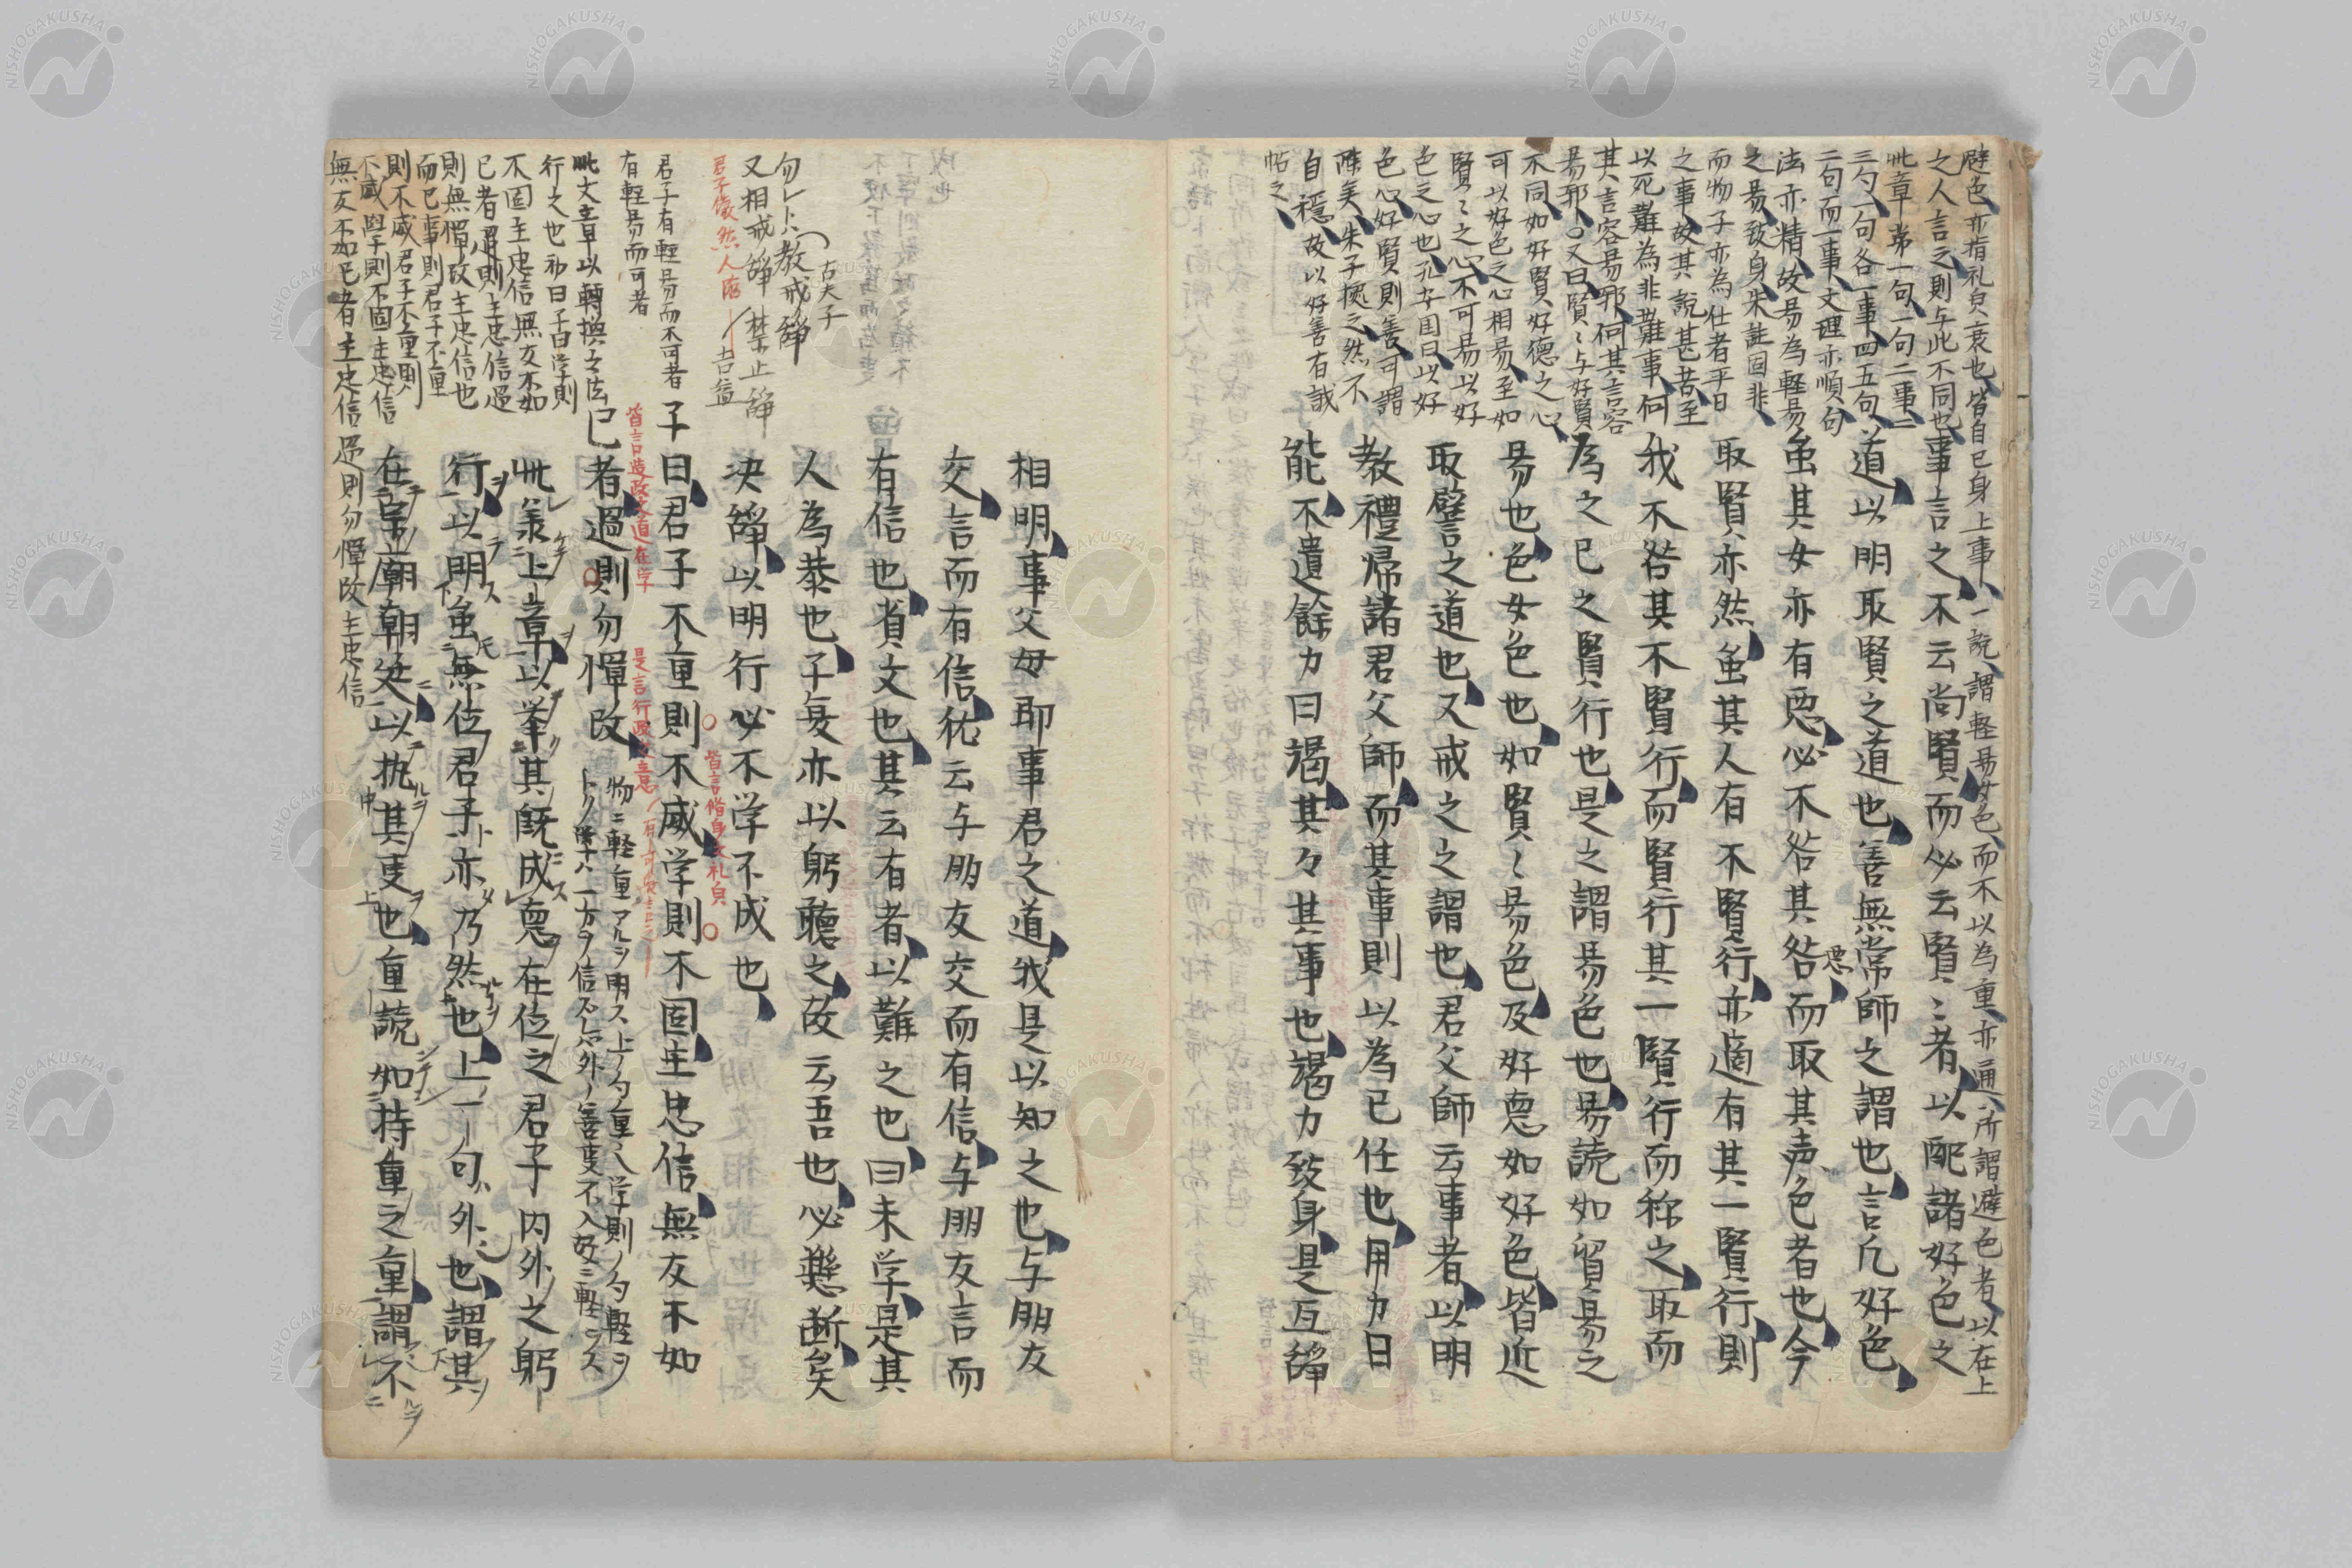 辟色亦指礼皃衰也皆自己身上事一説謂軽易女色而不以為重亦通所謂避色者以在上
之人言之則与此不同也
此章第一句一句二事二
三句一句各一事四五句
二句而一事文理亦順句
法亦精故易為軽易
之易致身朱註固非
而物子亦為仕者平日
之事故其説甚苦至
以死難為非難事何
其言容易邪何其言容
易邪○又曰賢〻与好賢
不同如好賢好德之心
可以好色之心相易至如
賢〻之心不可易以好
色之心也孔安国曰以好
色心好賢則善可謂
陳矣朱子換之然不
自穏故以好善有誠
帖之
事言之不云尚賢而必云賢〻者以配諸好色之
道以明取賢之道也善無常師之謂也言凡好色
虽其女亦有悪必不咎其咎而取其声色者也今
取賢亦然虽其人有不賢行亦適有其一賢行則
我不咎其不賢行而賢行其一賢行而称之取而
為之已之賢行也是之謂易色也易読如貿易之
易也色女色也如賢〻易色及好悳如好色皆近
取譬之道也又戒之之謂也君父師云事者以明
教禮帰諸君父師而其事則以為已任也用力曰
能不遺餘力曰竭其々其事也竭力致身是互辞
相明事父母即事君之道我是以知之也与朋友
交言而有信犹云与朋友交而有信与朋友言而
有信也省文也其云有者以難之也曰未学是其
人為恭也子夏亦以躬聴之故云吾也必懸断矣
决辞以明行必不学不成也
勿レトハ教戒ノ辞
古夫子
又相戒辞禁止辞
子曰君子不重則不威学則不固主忠信無友不如
已者過則勿憚改
皆言脩身文礼皃
君子有輕易而不可者
有軽易而可者
物ニ軽重アルヲ明ス上ノ句ノ重ハ学則ノ句軽ヲ
此文章以轉換之法
行之也初曰子曰学則
不固主忠信無友不如
已者過則主忠信過
則無憚改主忠信也
而已事則君子不重
則不威君子不重則
不威學則不固主忠信
無友不如已者主忠信過則勿憚改主忠信
此承上章以挙其既成悳在位之君子内外之躬
行以明虽無位君子亦乃然也上一句外也謂其
在宗廟朝廷以執其叓也重読如持重之重謂不